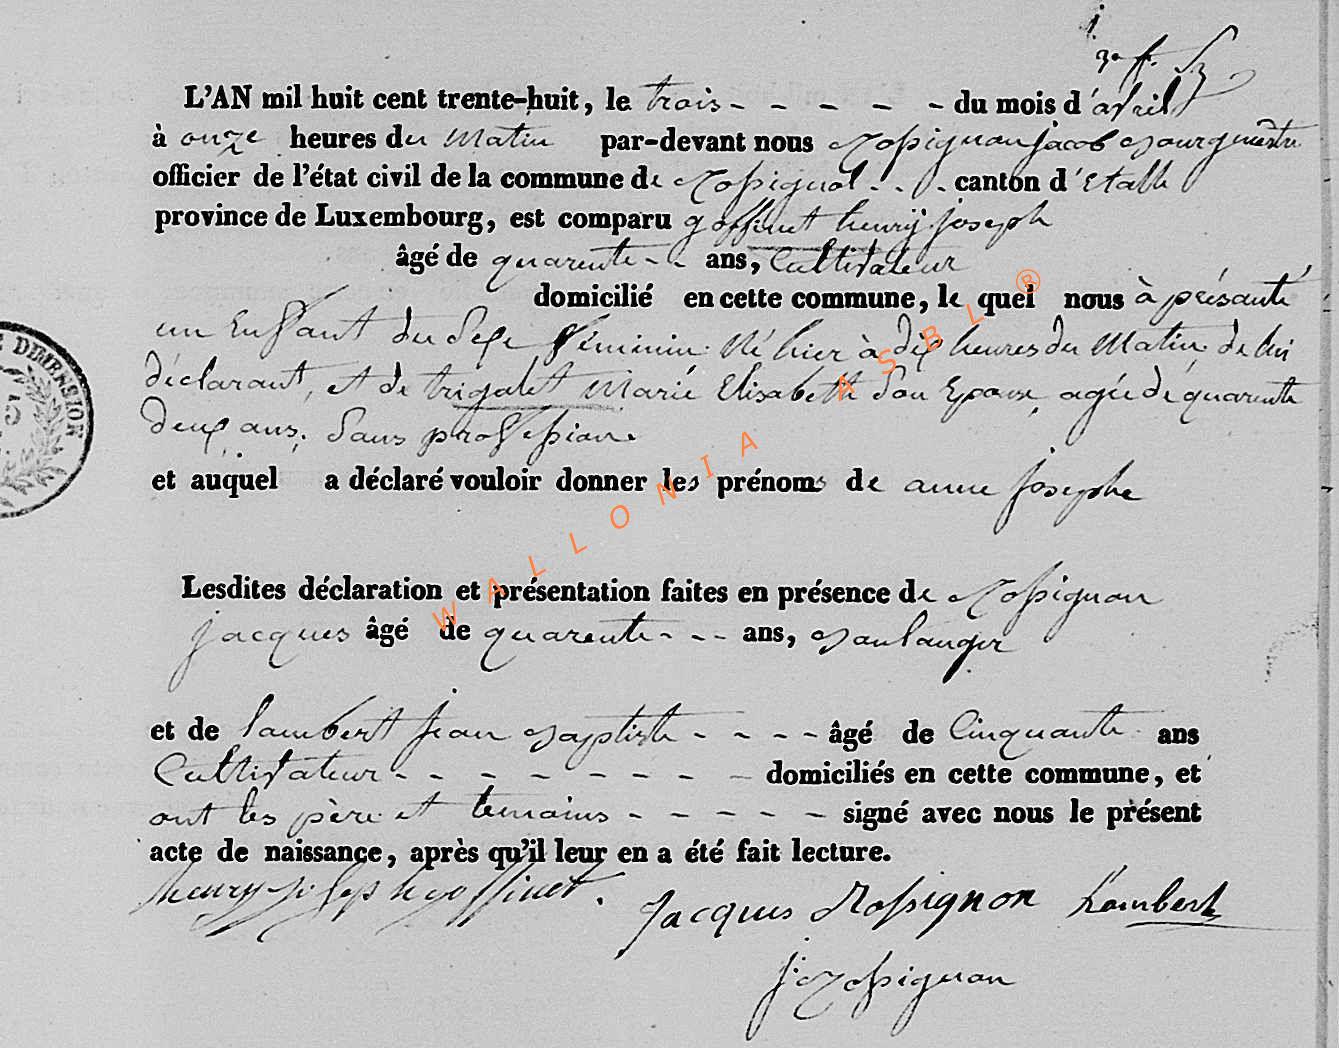 L'AN mil huit cent trente-huit, le trois - - - - - du mois d'avril
à onze heures du Matin par-devant nous Rossignon jacob Bourgmestre
officier de l'état civil de la commune de Rossignol - - - canton d'Etalle
province de Luxembourg, est comparu goffinet henry joseph
âgé de quarente - - ans, Cultivateur
domicilié en cette commune, le quel nous à présanté
un Enfant du Sexe féminin. Né hier à dix heures du Matin de lui
déclarant, et de trigalet Marie Elisabeth Son Epouse, agée de quarente
deux ans, Sans proffession.
et auquel a déclaré vouloir donner les prénoms de anne josephe
Lesdites déclaration et présentation faites en présence de Rossignon
jacques âgé de quarente - - - ans, Boulanger
et de lambert jean Baptiste - - - - âgé de Cinquante ans
Cultivateur - - - - - - - - domiciliés en cette commune, et
ont les père et temoins - - - - - signé avec nous le présent
acte de naissance, après qu'il leur en a été fait lecture.
henry joseph goffinet.
Jacques Rossignon Lambert
j: Rossignon
DIMENSION
WALLONIA ASBL ®